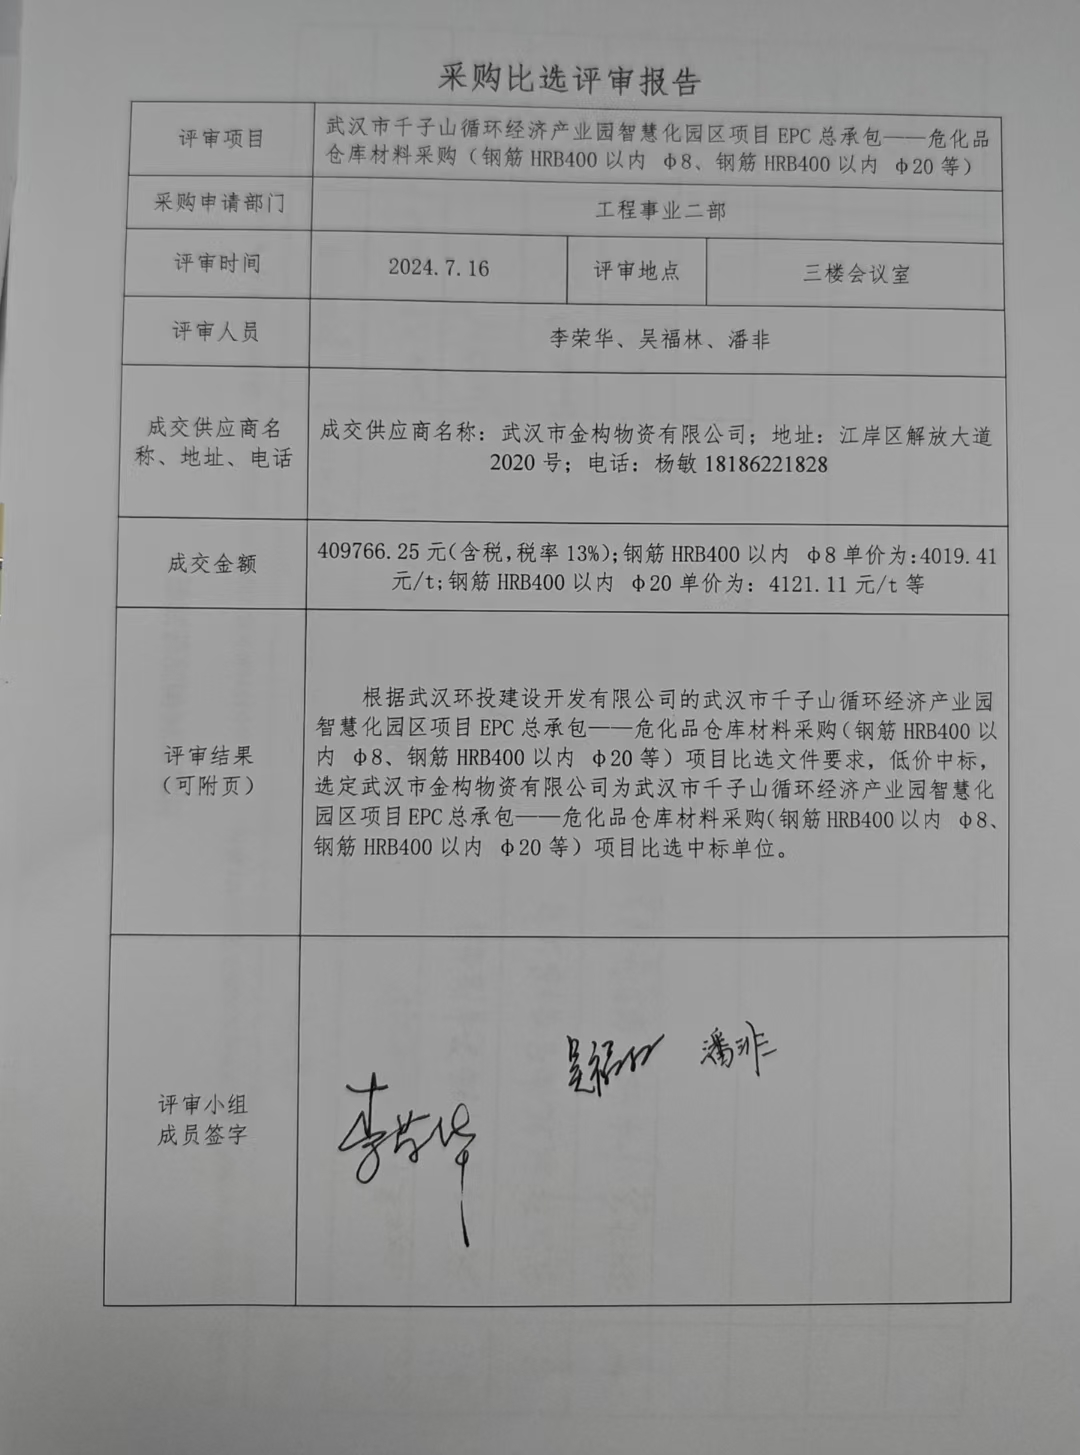 采购比选评审报告
评审项目
武汉市千子山循环经济产业园智慧化园区项目EPC总承包——危化品
仓库材料采购（钢筋HRB400以内 φ8、钢筋HRB400以内 φ20等）
采购申请部门
工程事业二部
评审时间
2024.7.16
评审地点
三楼会议室
评审人员
李荣华、吴福林、潘非
成交供应商名
称、地址、电话
成交供应商名称：武汉市金构物资有限公司；地址：江岸区解放大道
2020号；电话：杨敏18186221828
成交金额
409766.25元(含税,税率13%);钢筋HRB400以内 φ8单价为:4019.41
元/t;钢筋HRB400以内 φ20单价为：4121.11元/t等
评审结果
（可附页）
根据武汉环投建设开发有限公司的武汉市千子山循环经济产业园
智慧化园区项目EPC总承包——危化品仓库材料采购(钢筋HRB400以
内 φ8、钢筋HRB400以内 φ20等）项目比选文件要求，低价中标，
选定武汉市金构物资有限公司为武汉市千子山循环经济产业园智慧化
园区项目EPC总承包——危化品仓库材料采购(钢筋HRB400以内 φ8、
钢筋HRB400以内 φ20等）项目比选中标单位。
评审小组
成员签字
吴福林 潘非
李荣华